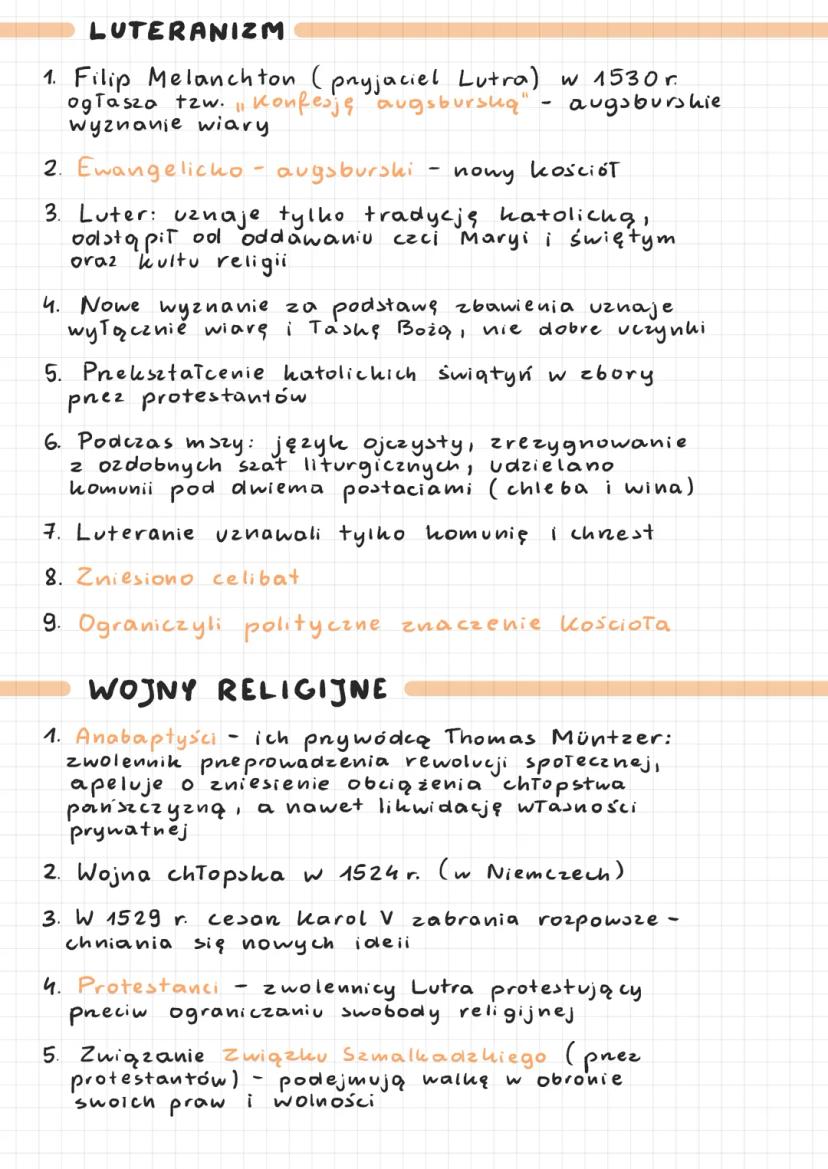 LUTERANIZM
1. Filip Melanchton (przyjaciel Lutra) w 1530 r.
ogłasza tzw. „Konfesję augsburską" - augsburskie
wyznanie wiary
2. Ewangelicko - augsburski - nowy kościół
3. Luter: uznaje tylko tradycję katolicką,
odstąpił od oddawaniu czci Maryi i świętym
oraz kultu religii
4. Nowe wyznanie za podstawę zbawienia uznaje
wyłącznie wiarę i łaskę Bożą, nie dobre uczynki
5. Przekształcenie katolickich świątyń w zbory
przez protestantów
6. Podczas mszy: język ojczysty, zrezygnowanie
z ozdobnych szat liturgicznych, udzielano
komunii pod dwiema postaciami (chleba i wina)
7. Luteranie uznawali tylko komunię i chrzest
8. Zniesiono celibat
9. Ograniczyli polityczne znaczenie Kościoła
WOJNY RELIGIJNE
1. Anabaptyści - ich przywódcą Thomas Müntzer:
zwolennik przeprowadzenia rewolucji społecznej,
apeluje o zniesienie obciążenia chłopstwa
pańszczyzną, a nawet likwidację własności
prywatnej
2. Wojna chłopska w 1524 r. (w Niemczech)
3. W 1529 r. cesarz Karol V zabrania rozpowsze -
chniania się nowych ideii
4. Protestanci - zwolennicy Lutra protestujący
przeciw ograniczaniu swobody religijnej
5. Związanie Związku Szmalkadzkiego (przez
protestantów) - podejmują walkę w obronie
swoich praw i wolności